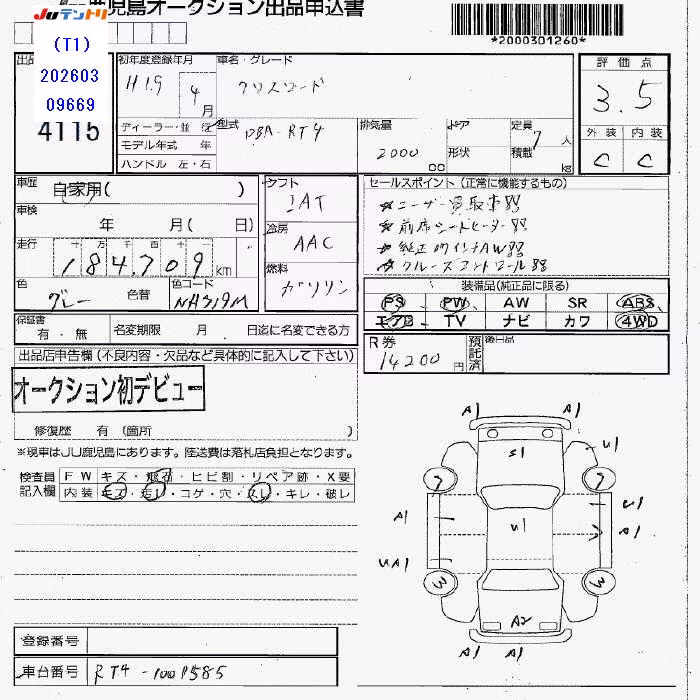 JUテントリ 鹿児島オークション出品申込書
*2000301260*
(T1)
202603
09669
4115
初年度登録年月 H19年 4月
車名・グレード クロスロード
評価点 3.5
ディーラー・並行
モデル年式 年
ハンドル 左・右
型式 DBA-RT4
排気量 2000 cc
ドア 形状
定員 7人
積載 kg
外装 内装
C C
車歴 自家用( )
車検 年 月( 日)
走行 十万千百十一
184,709 km
色 グレー 色替
色コード NH319M
シフト IAT
冷房 AAC
燃料 ガソリン
セールスポイント(正常に機能するもの)
★ユーザー買取車!!
★前席シートヒーター!!
★純正 インチAW!!
★クルーズコントロール!!
装備品(純正品に限る)
PS PW AW SR ABS
エアB TV ナビ カワ 4WD
保証書 有・無
名変期限 月 日迄に名変できる方
R券 14200円
預託済
後日品
出品店申告欄(不良内容・欠品など具体的に記入して下さい)
オークション初デビュー
修復歴 有(箇所 )
※現車はJU鹿児島にあります。陸送費は落札店負担となります。
検査員記入欄
FW キズ・飛石・ヒビ割・リペア跡・X要
内装 キズ・汚レ・コゲ・穴・スレ・キレ・破レ
A1 A1
S1 U1
7 7
A1 U1 U1
A1
UA1 A1
3 3
A2
A1 A1
登録番号
車台番号 RT4-1001585